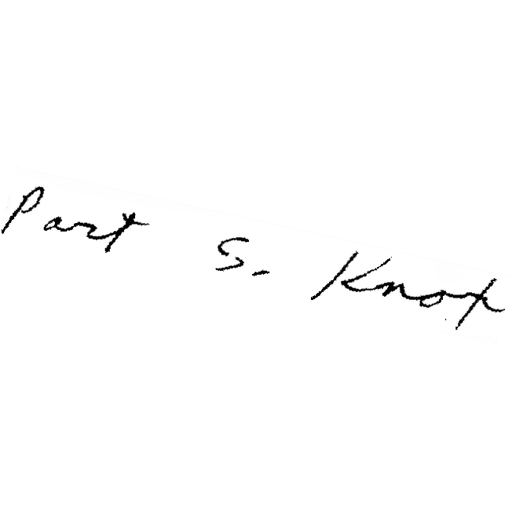 Part S. Knox